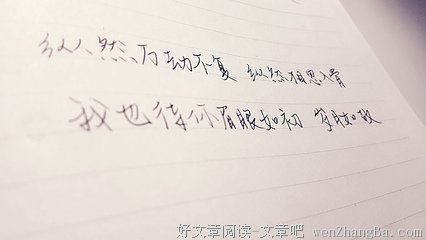 纵然万劫不复 纵然相思入骨
我也待你眉眼如初 岁月如故
好文章阅读-文章吧 wenZhangBa.com